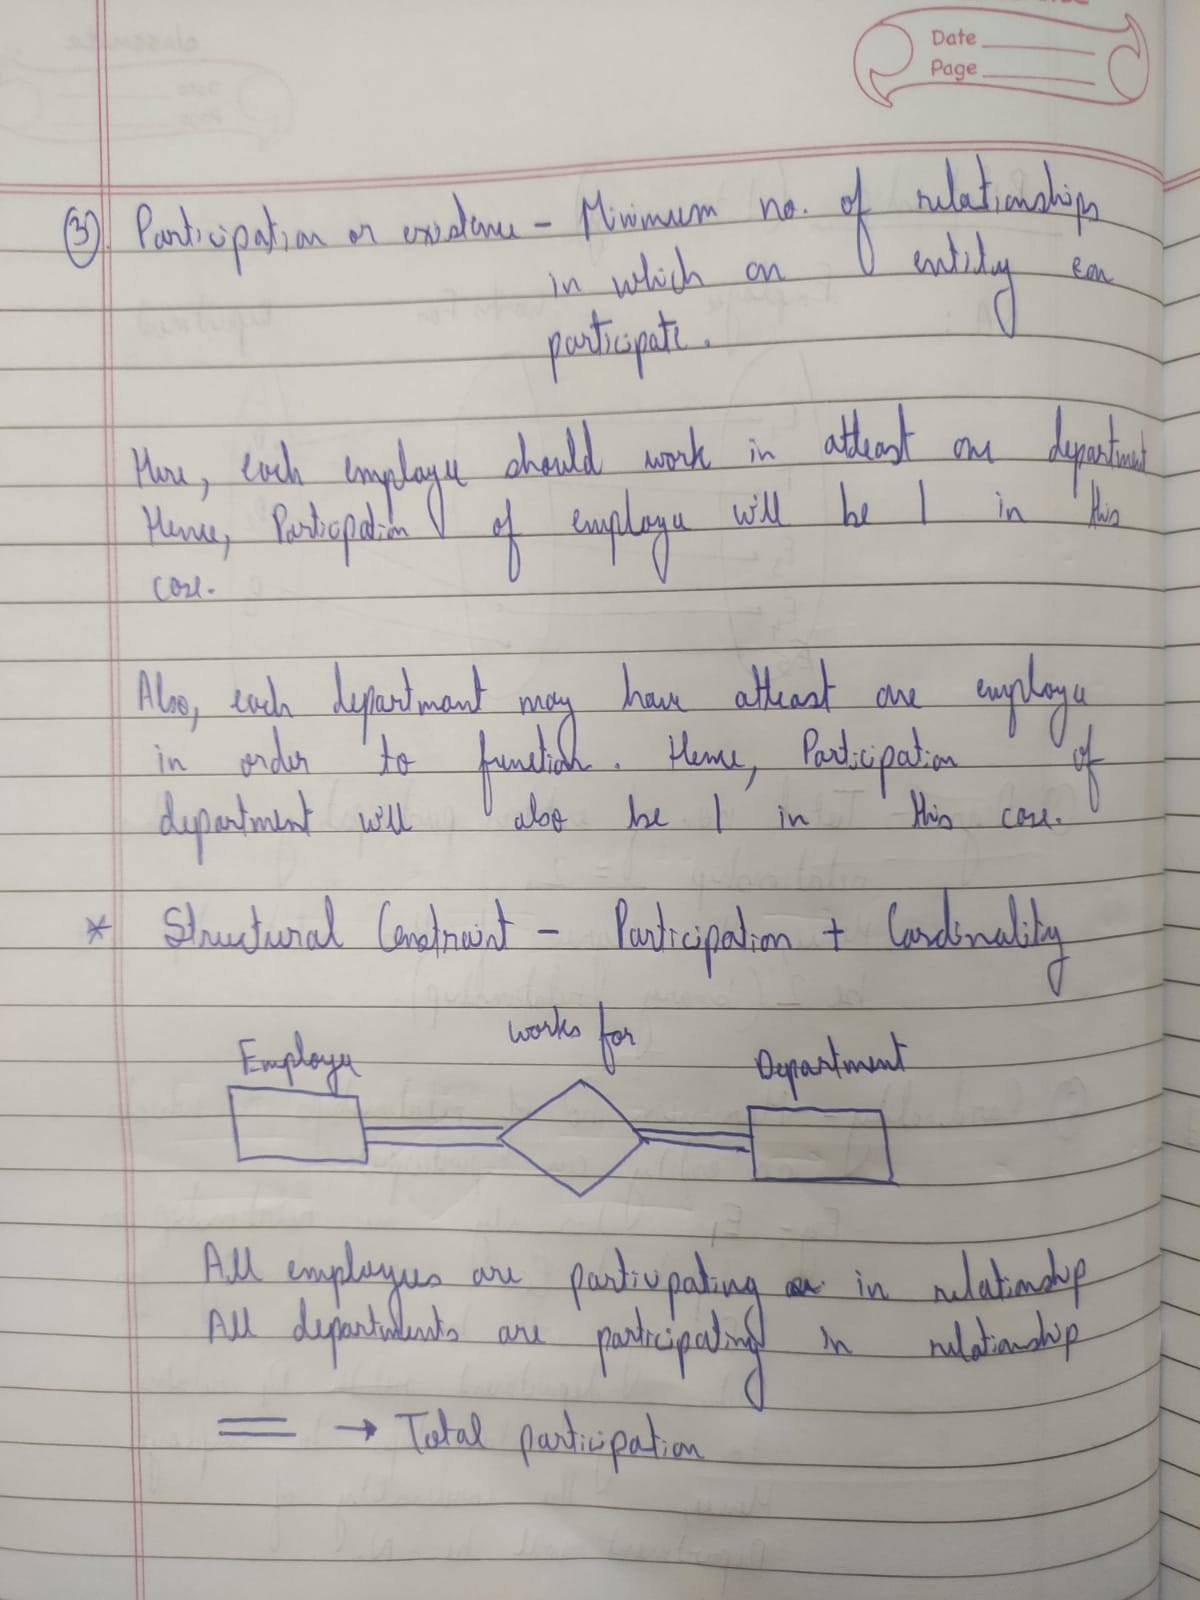 Date
Page
③ Participation or existence - Minimum no. of relationships
in which an entity can
participate.
Here, each employee should work in atleast one department
Hence, Participation of employee will be 1 in this
case.
Also, each department may have atleast one employee
in order to function. Hence, Participation of
department will also be 1 in this case.
* Structural Constraint - Participation + Cardinality
works for
Employee
Department
All employees are participating in relationship
All departments are participating in relationship
= → Total participation